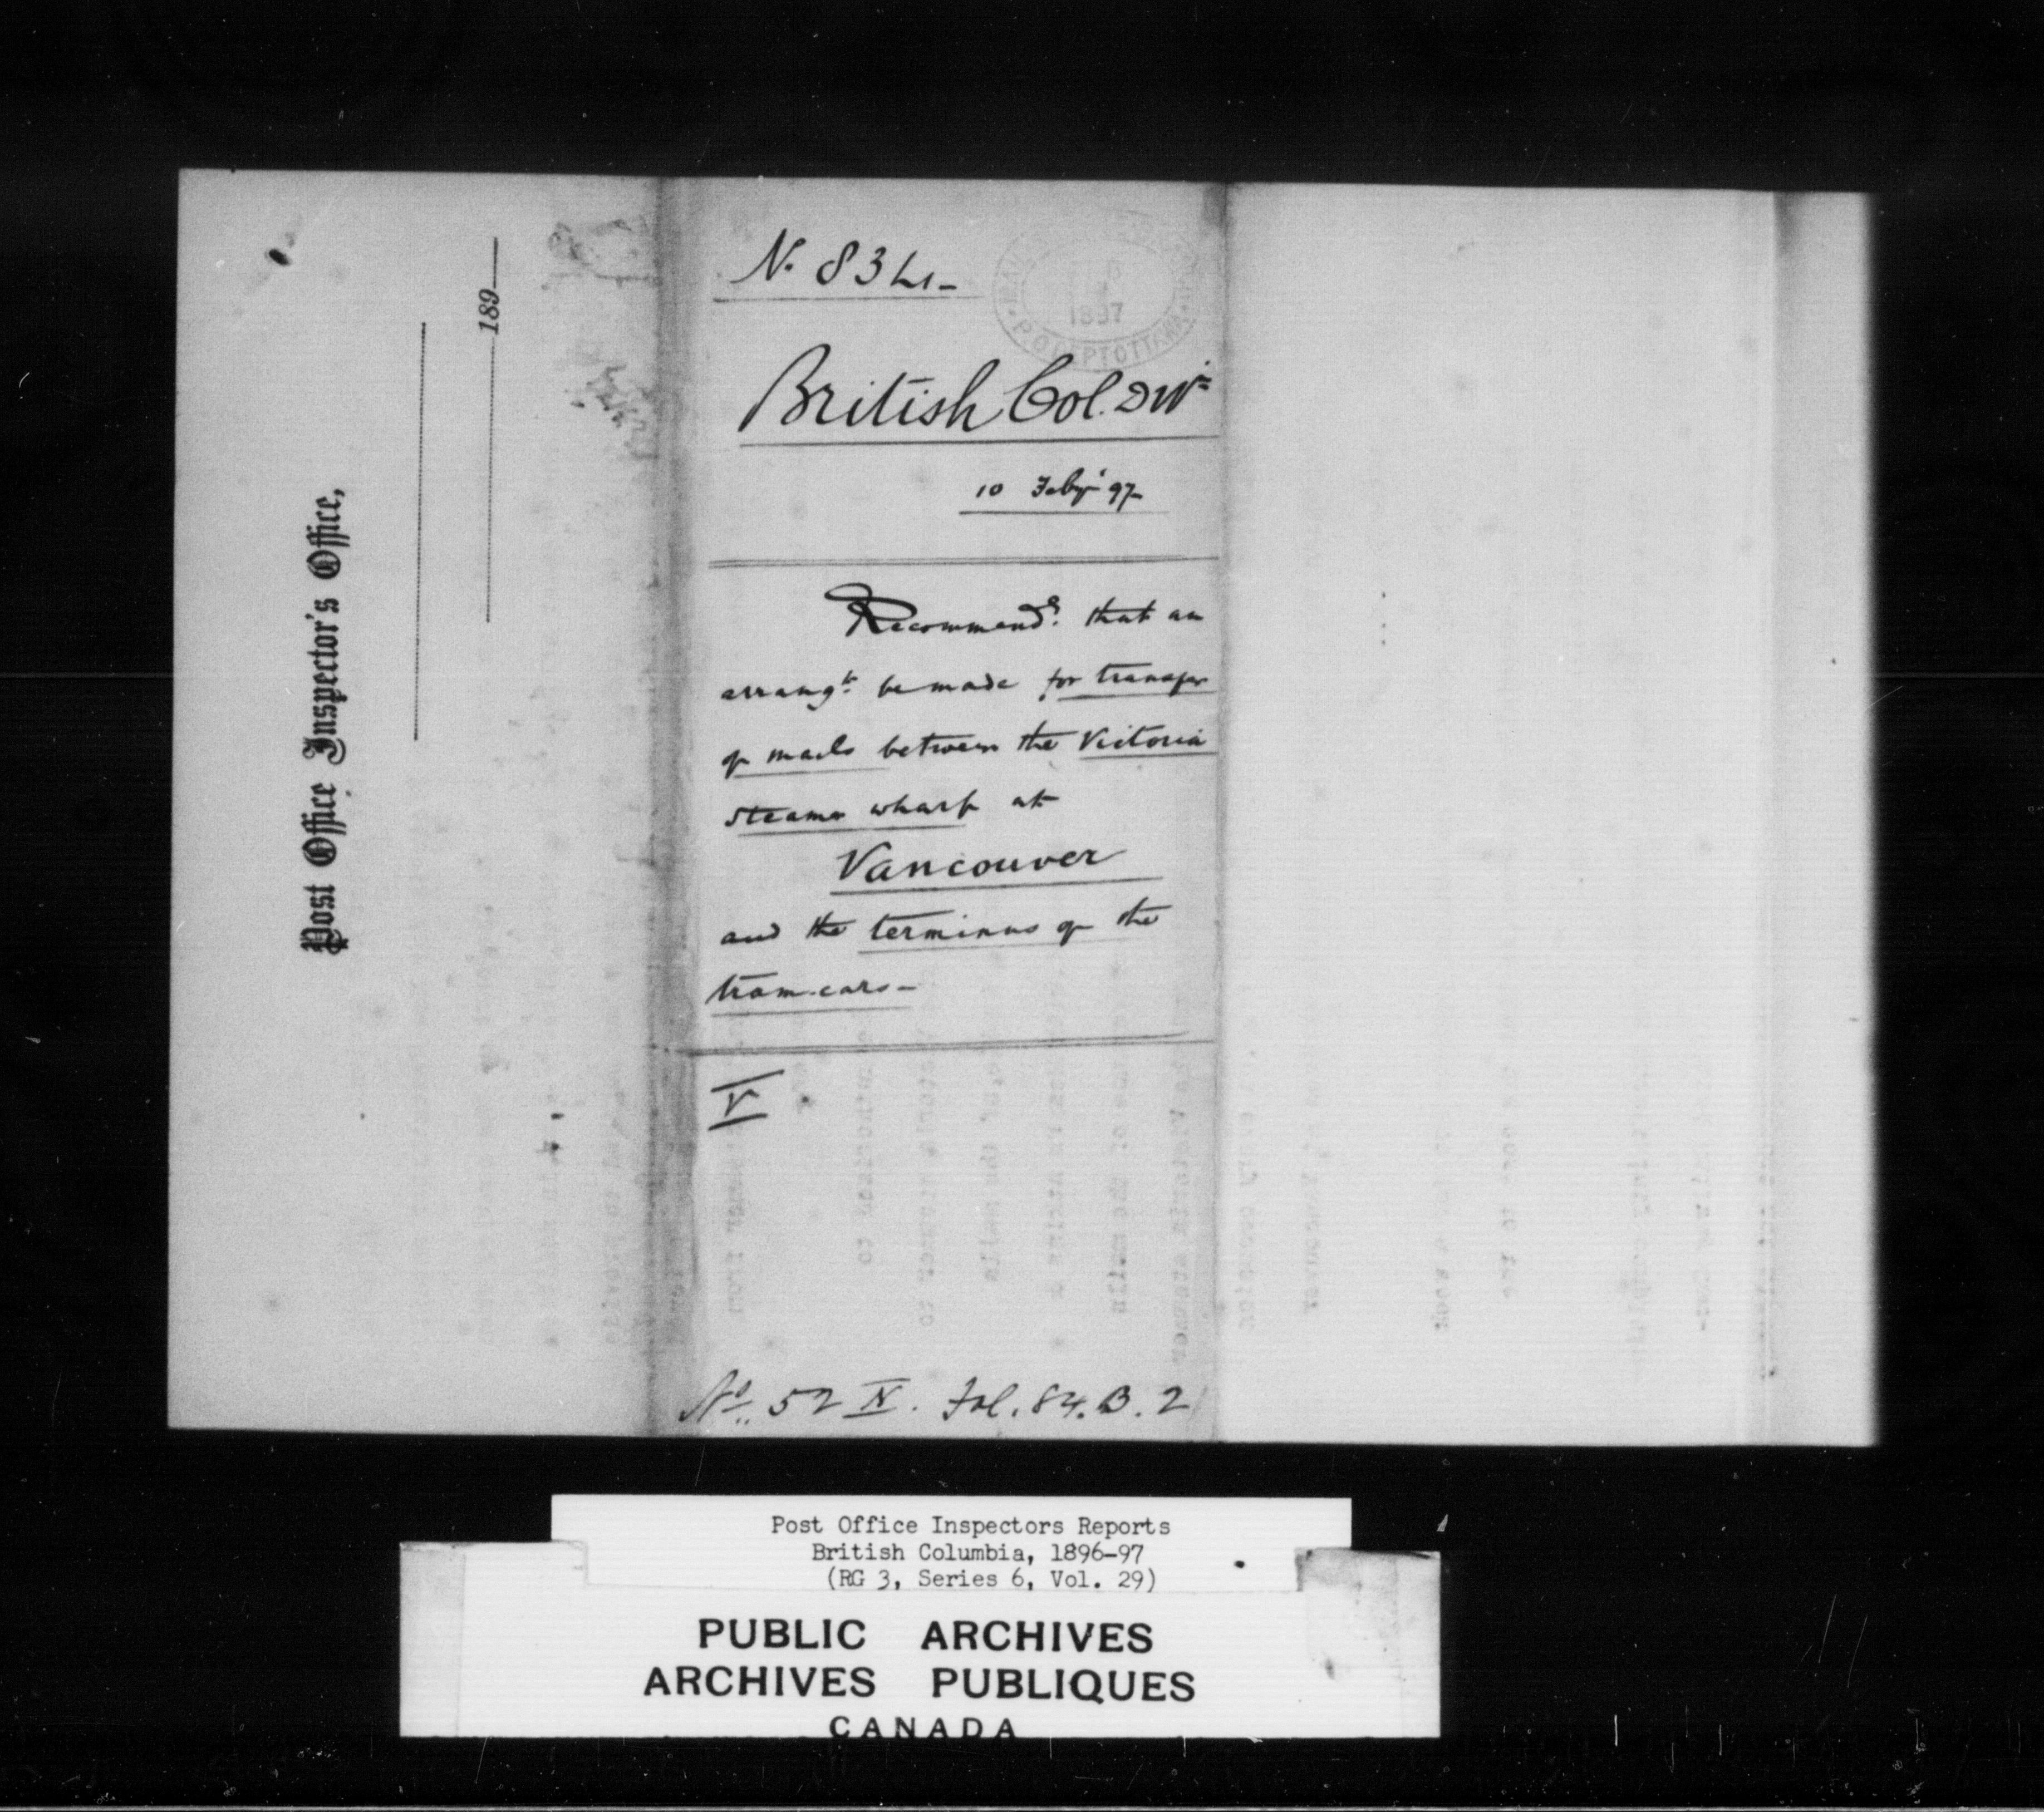 Post Office Inspector's Office,
189
No. 834
1897
P.O. DEPT OTTAWA
British Col. Divn
10 Feby 97
Recommends that an
arrangt. be made for transfer
of mails between the Victoria
steamer wharf at
Vancouver
and the terminus of the
tram-cars-
V
No. 52 N. Fol. 84. B. 2
Post Office Inspectors Reports
British Columbia, 1896-97
(RG 3, Series 6, Vol. 29)
PUBLIC ARCHIVES
ARCHIVES PUBLIQUES
CANADA